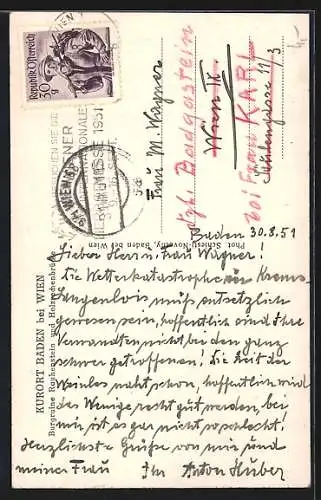 Republik Österreich
30 g
WIENER
MESSE 1951
WIEN
Frau M. Wagner
Wien IX
dzt. Badgastein
bei Frau KARL
11/3
Phot. Schiestl-Novotny, Baden bei Wien
KURORT BADEN bei WIEN
Burgruine Rauhenstein und Holzrechenbrücke
Baden 30.8.51
Lieber Herr u. Frau Wagner!
Die Wetterkatastrophe in Krems-
Langenlois muß entsetzlich
gewesen sein, hoffentlich sind Ihre
Verwandten nicht bei den ganz
schwer getroffenen! Die Zeit der
Weinlese naht schon, hoffentlich wird
das Wenige recht gut werden, bei
mir ist es gar nicht so schlecht!
Herzlichste Grüße von mir und
meiner Frau Ihr Anton Huber